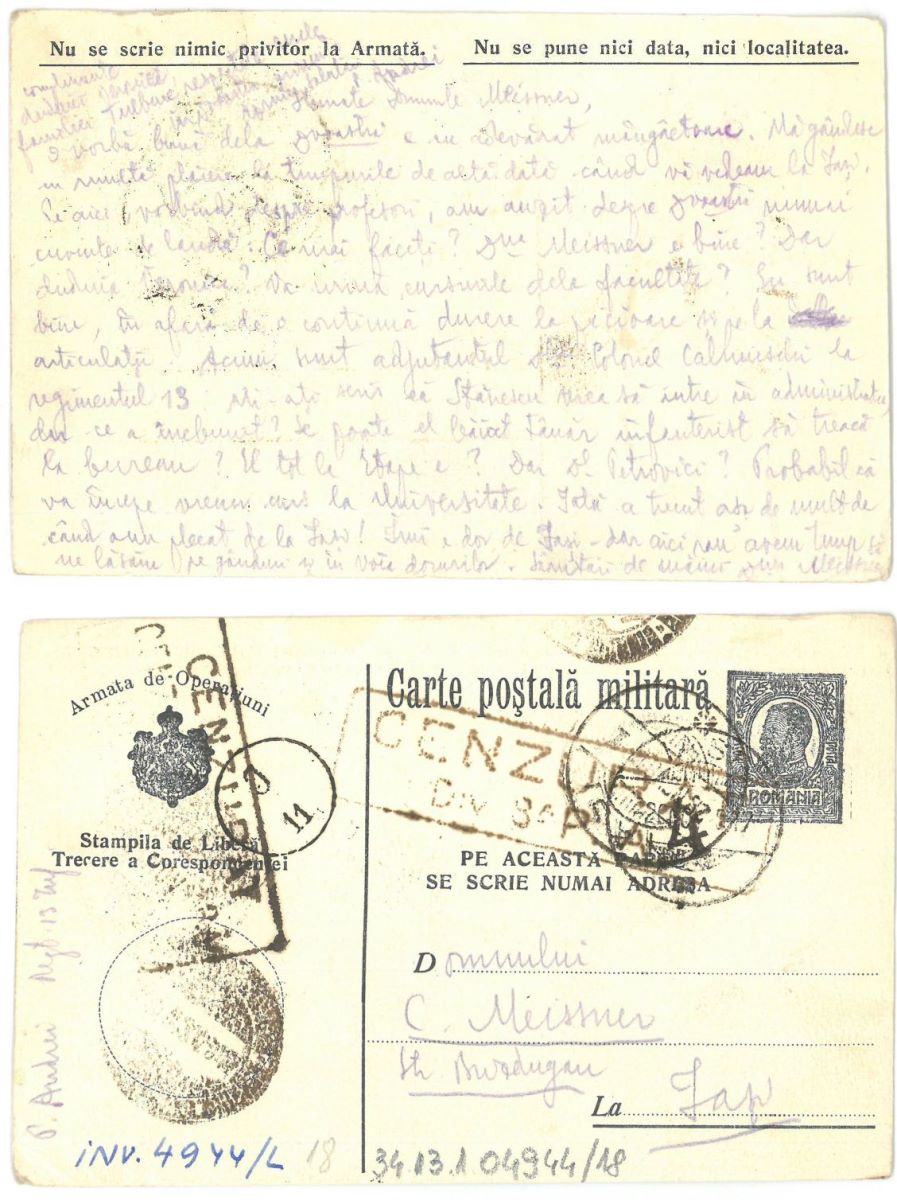 Nu se scrie nimic privitor la Armată.
Nu se pune nici data, nici localitatea.
complimente
familiei Trebuie
Andrei
Stimate Domnule Meissner,
O vorbă bună dela e cu adevărat mângâetoare. Mă gândesc
cu multă plăcere la timpurile de altă dată când vă vedeam la Iași.
Pe aici, vorbind despre profesori, am auzit despre numai
cuvinte de laudă. Ce mai faceți? Dna Meissner e bine? Dar
duduia? Va urma cursurile dela facultate? Eu sunt
bine, în afară de o continuă durere la picioare și pe la
articulații. Acum sunt adjutantul Colonel la
regimentul 13. Mi-ați scris că Stănescu vrea să intre în administrație,
dar ce a înebunit? Se poate el băiat tânăr infanterist să treacă
la bureau? El tot la Etape e? Dar Dl Petrovici? Probabil că
va începe vreun curs la Universitate. Iată a trecut așa de mult de
când am plecat de la Iași! Îmi e dor de Iași - dar aici nu avem timp să
ne lăsăm pe gânduri și în voia dorurilor. Sărutări de mâini Dnei Meissner
Armata de Operațiuni
CENZURAT
Stampila de Liberă
Trecere a Corespondenței
11
P. Andrei Regt. 13 Inf
Carte poştală militară
CENZURAT
DIV
ROMANIA
4
PE ACEASTA PARTE
SE SCRIE NUMAI ADRESA
Domnului
C. Meissner
Str Buzdugan
La Iași
INV. 4944/L 18
34.13.1 04944/18